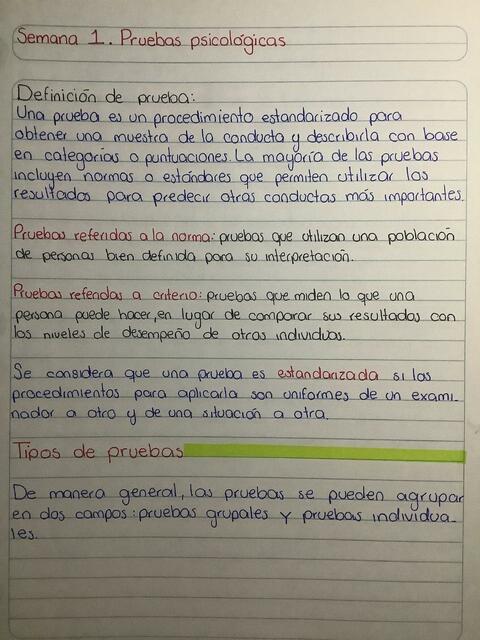 Semana 1. Pruebas psicológicas
Definición de prueba:
Una prueba es un procedimiento estandarizado para
obtener una muestra de la conducta y describirla con base
en categorías o puntuaciones. La mayoría de las pruebas
incluyen normas o estándares que permiten utilizar los
resultados para predecir otras conductas más importantes.
Pruebas referidas a la norma: pruebas que utilizan una población
de personas bien definida para su interpretación.
Pruebas referidas a criterio: pruebas que miden lo que una
persona puede hacer, en lugar de comparar sus resultados con
los niveles de desempeño de otros individuos.
Se considera que una prueba es estandarizada si los
procedimientos para aplicarla son uniformes de un exami-
nador a otro y de una situación a otra.
Tipos de pruebas
De manera general, las pruebas se pueden agrupar
en dos campos: pruebas grupales y pruebas individua-
les.